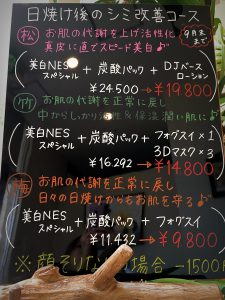 日焼け後のシミ改善コース
松 お肌の代謝を上げ活性化
真皮に直でスピード美白♪
9月末まで
美白NESスペシャル + 炭酸パック + DJベースローション
¥24.500→¥19.800
竹 お肌の代謝を正常に戻し
中からしっかり活性&保湿潤い肌に♪
美白NESスペシャル + 炭酸パック + フォグスイ×1
3Dマスク×3
¥16.292→¥14.800
梅 お肌の代謝を正常に戻し
日々の日焼けからもお肌を守る♪
美白NESスペシャル + 炭酸パック + フォグスイ
¥11.432→¥9.800
※顔そりな 場合 -1500